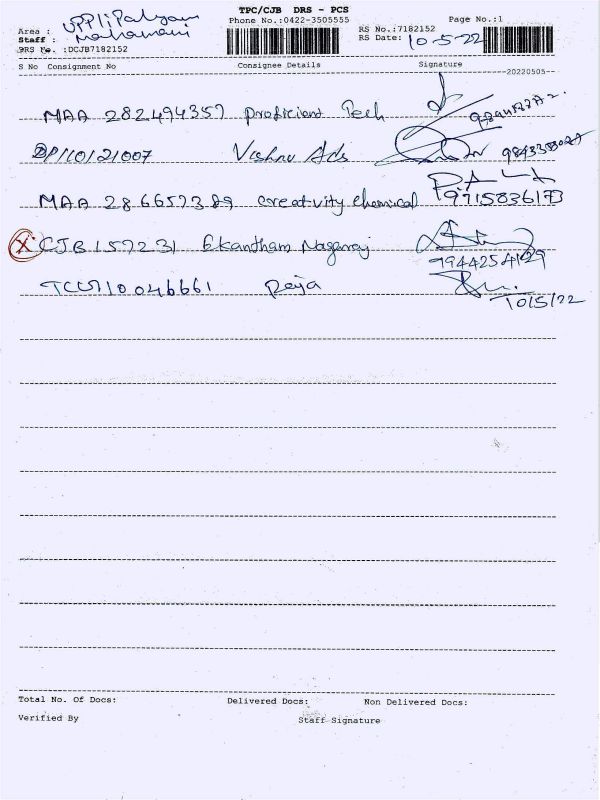 TPC/CJB DRS - PCS
Area : UPPliPalyam Phone No.:0422-3505555 Page No.:1
Staff : Mahamani RS No.:7182152
DRS No. :DCJB7182152 RS Date: 10-5-22
S No Consignment No Consignee Details Signature
20220505
MAA 282494357 Proficient Tech
DPI10121007 Vishnu Ads
MAA 286657389 Creativity Chemical 9715836193
X CJB 157231 Ekantham Nagaraj
9944254129
Raja
10/5/22
Total No. Of Docs: Delivered Docs: Non Delivered Docs:
Verified By Staff Signature